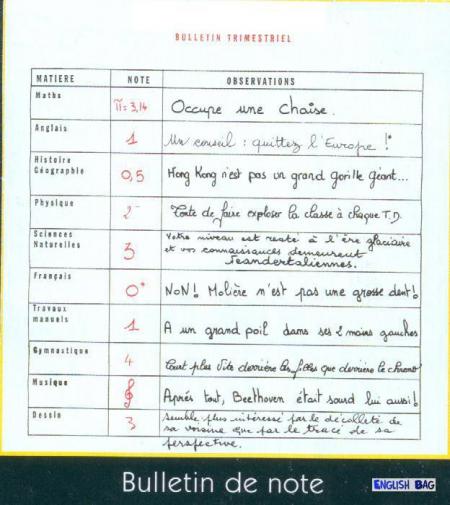 BULLETIN TRIMESTRIEL
MATIERE NOTE OBSERVATIONS
Maths π=3,14 Occupe une chaise.
Anglais 1 Un conseil : quittez l'Europe !*
Histoire
Géographie 0,5 Hong Kong n'est pas un grand gorille géant...
Physique 2 Tente de faire exploser la classe à chaque T.D.
Sciences
Naturelles 3 Votre niveau est resté à l'ère glaciaire
et vos connaissances demeurent
Neandertaliennes.
Français 0* NoN! Molière n'est pas une grosse dent!
Travaux
manuels 1 A un grand poil dans ses 2 mains gauches
Gymnastique 4 Court plus vite derrière les filles que derrière le chrono!
Musique 𝄞 Après tout, Beethoven était sourd lui aussi!
Dessin 3 Semble plus intéressé par le décolleté de
sa voisine que par le tracé de sa
perspective.
Bulletin de note
ENGLISH BAG